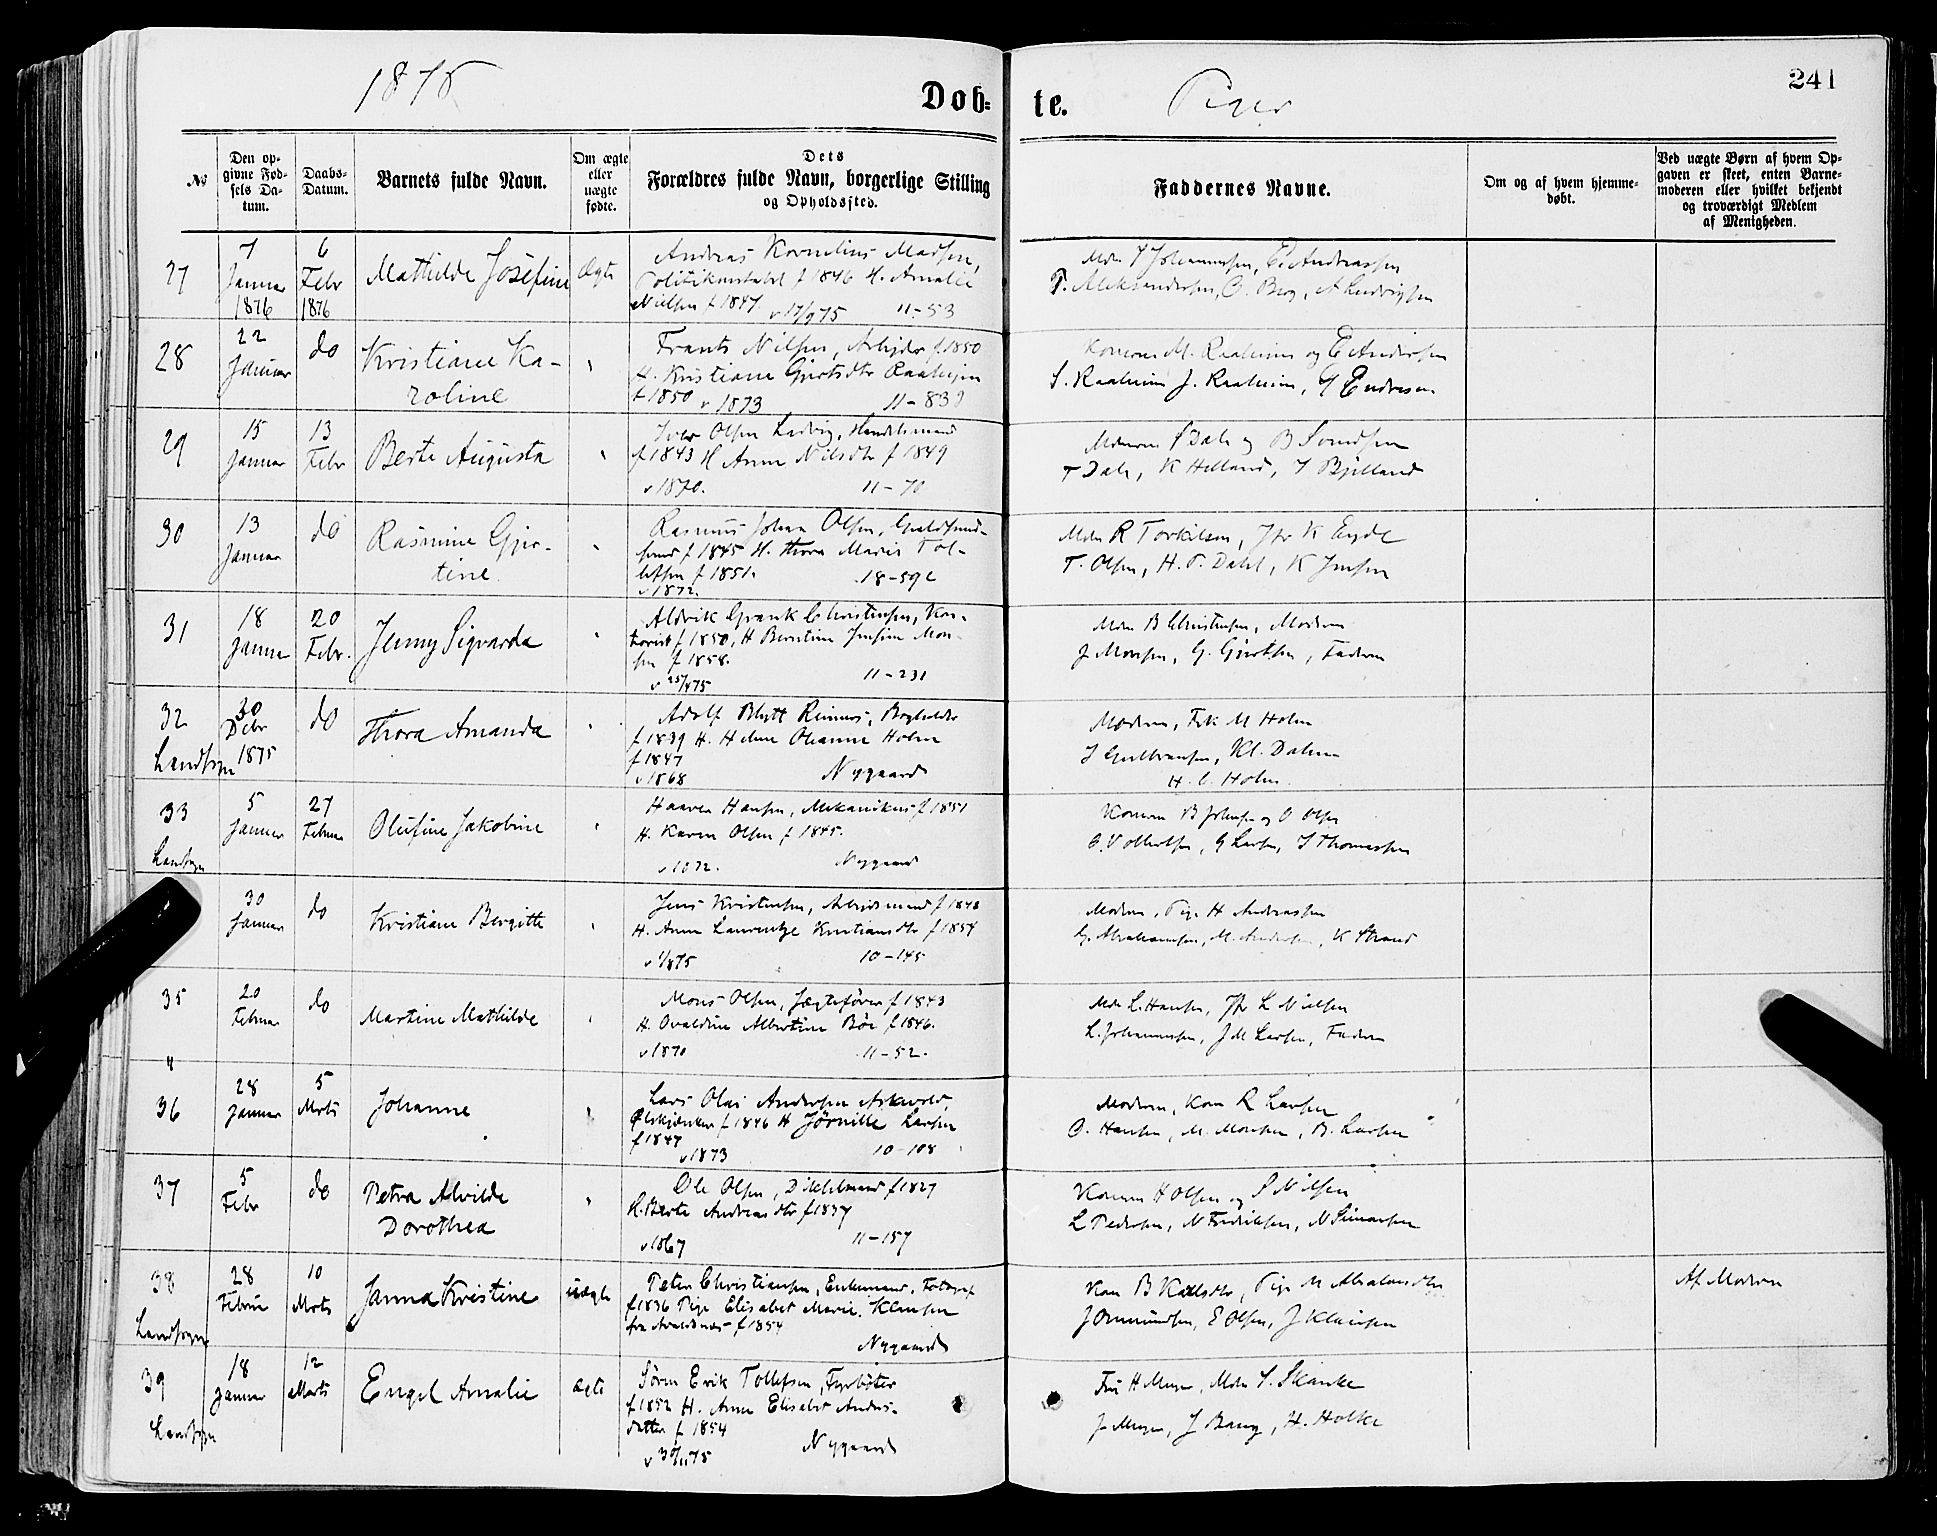 1876
Døb-
te.
Piger
241
№
Den op-
givne Fød-
sels Da-
tum.
Daabs-
Datum.
Barnets fulde Navn.
Om ægte
eller
uægte
fødte.
Dets
Forældres fulde Navn, borgerlige Stilling
og Opholdssted.
Faddernes Navne.
Om og af hvem hjemme-
døbt.
Ved uægte Børn af hvem Op-
gaven er skeet, enten Barne-
moderen eller hvilket bekjendt
og troværdigt Medlem
af Menigheden.
27
7
Januar
1876
6
Febr
1876
Mathilde Josefine
Ægte
Andreas Kornelius Madsen,
Politikonstabel f 1846 H. Amalie
Nielsen f 1847 v 17/9 75 11-53
Mdm Johannesen, E. Andreassen
T. Aleksandersen, O. Berg, A Ludvigsen
28
22
Januar
do
Kristiane Ka-
roline
Frants Nilsen, Arbejder f 1850
H. Kristiane Gjertsdtr Raaheim
f 1850 v 1873 11-839
Konerne M. Raaheim og E Andersen
S. Raaheim J. Raaheim, Endresen
29
15
Januar
13
Febr
Berte Augusta
Iver Olsen Ladvig, Handelsmand
f 1843 H Anne Nilsdtr f 1849
v 1870. 11-70
Dale og B Svendsen
T Dale, K Helland, Bjelland
30
13
Januar
do
Rasmine Gjer-
tine
Rasmus Johan Olsen, Guldsmed-
svend f 1845 H. Thora Marie Tol-
lefsen f 1851. 18-592
v 1872.
Mdm R Torkilsen, Jfr K Eyde
T. Olsen, H. T. Dahl, K Jensen
31
18
Januar
20
Febr.
Jenny Sigvarda
Aldrik Grank Christensen, Kon-
torist f 1850, H Berntine Josefine Mon-
sen f 1858.
v 25/4 75 11-231
Mdm B Christensen, Moderen
J Monsen, G. Gjertsen, Faderen
32
Landsogn
30
Debr
1875
do
Thora Amanda
Adolf Blytt Reimers, Bogholder
f 1839 H. Helene Oleanne Holm
f 1847
v 1868 Nygaard
Moderen, Frk M Holm
Gulbransen, Kl. Dahm
H. C. Holm
33
Landsogn
5
Januar
27
Februar
Olufine Jakobine
Haaver Hansen, Mekanikus f 1851
H. Karen Olsen f 1845.
v 1872. Nygaard
Konerne B Johnsen og O Olsen
O. Vollertsen, G Larsen, Thomassen
30
Januar
do
Kristiane Bergitte
Jens Kristensen, Arbeidsmand f 1848
H. Anne Laurentze Kristiansdtr f 1854
10-145
Moderen, Pige H Andreassen
G. Abrahamsen, M. Andersen, K Strand
35
20
Februar
do
Martine Mathilde
Mons Olsen, Jægtefører f 1843
H. Ovaldine Albertine Bøe f 1846.
v 1870 11-52.
Mdm L. Hansen, Jfr L Nielsen
L. Johannessen, J M Larsen, Faderen
36
28
Januar
5
Marts
Johanne
Lars Olai Andersen Askvold,
Ølskjænker f 1846 H Jørnille Larsen
f 1847
v 1873 10-108
Moderen, Kone R Larsen
O. Hansen, M. Monsen, B. Larsen
37
5
Febr
do
Petra Alvilde
Dorothea
Ole Olsen, Dikkelsmand f 1827
H. Berte Andreasdtr f 1837
v 1867 11-157
Konerne H Olsen og S Nilsen
L Pedersen, N Fredriksen, N Simonsen
38
Landsogn
28
Februar
10
Marts
Janna Kristine
uægte
Peter Christiansen, Enkemand, Fotograf
f 1836 Pige Elisabet Marie Klausen
fra Avaldsnæs f 1854
Nygaard
Kone B Karlsdtr, Pige M Abrahamsdtr
J Ommundsen, E Olsen, J Klausen
Af Moderen
39
Landsogn
18
Januar
12
Marts
Engel Amalie
ægte
Søren Erik Tollefsen, Fyrbøter
f 1852 H. Anne Elisabet Anders-
datter f 1854
v 30/11 75 Nygaard
Fru H Meyer, Mdm S. Skanke
J Meyer, J Bang, H. Holke